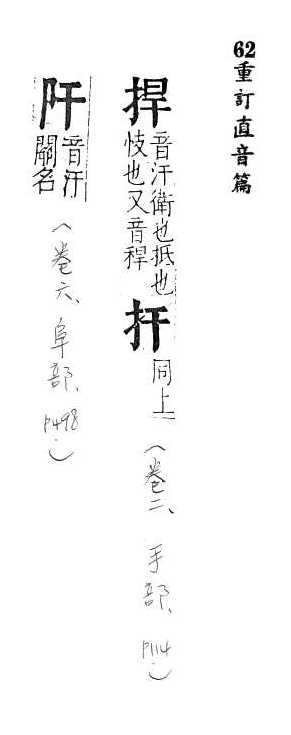 62重訂直音篇
捍音汗衛也抵也
忮也又音稈
扞同上(卷二、手部、P114.)
䦥音汗
闕名
(卷六、阜部、P498.)